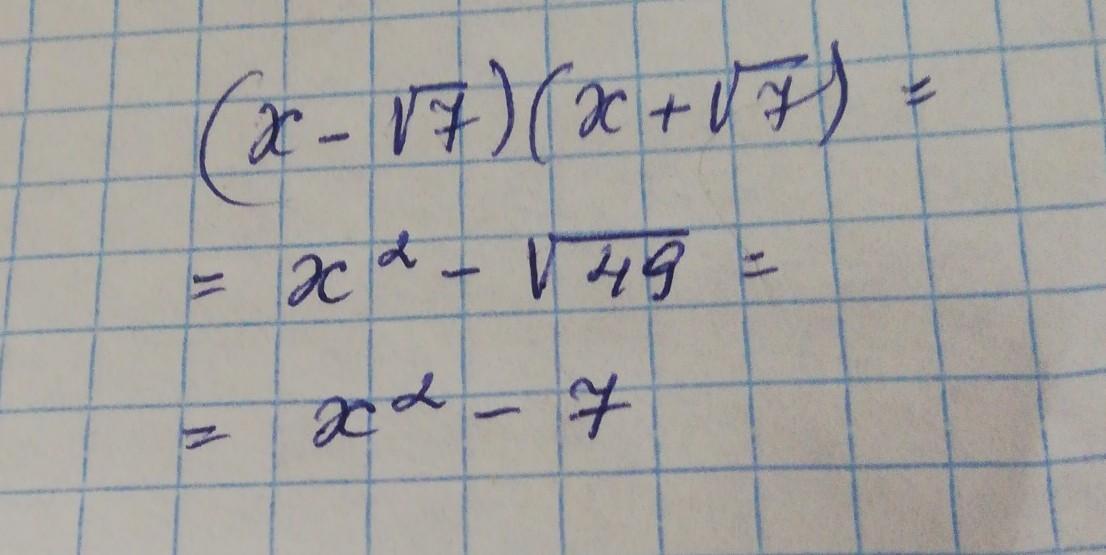 (x - √7)(x + √7) =
= x² - √49 =
= x² - 7